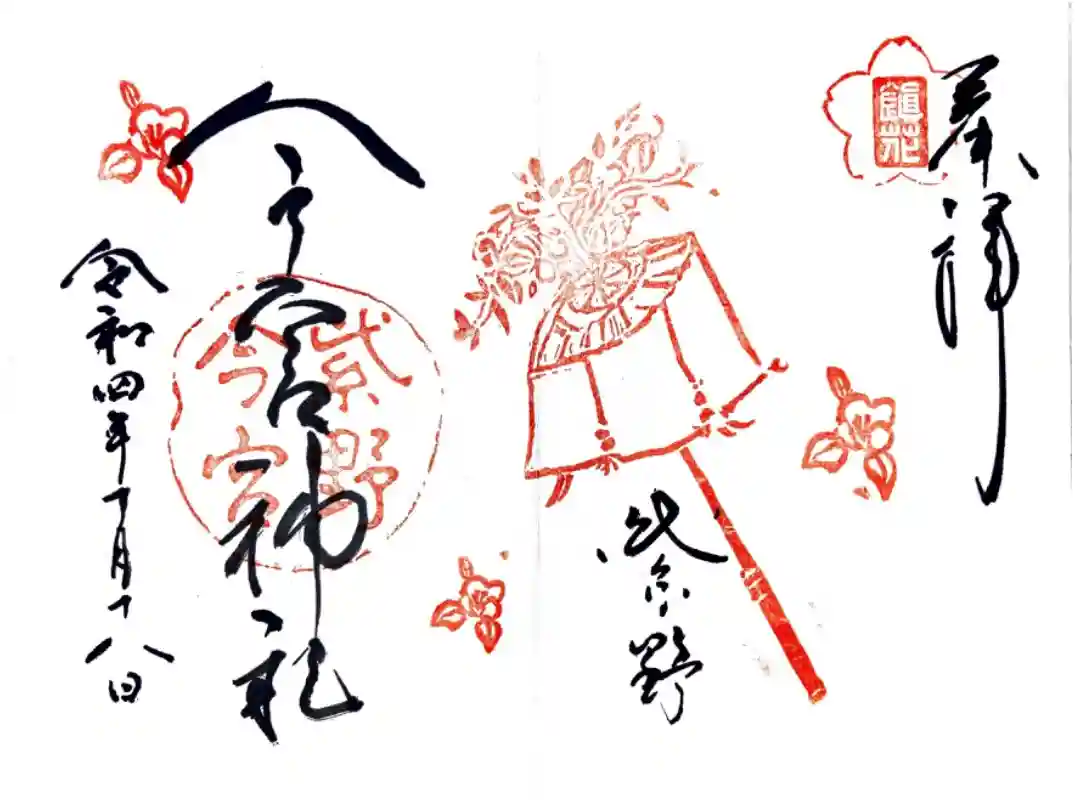 奉拝
鎮花
紫野
今宮神社
紫野
今宮
令和四年十月十八日